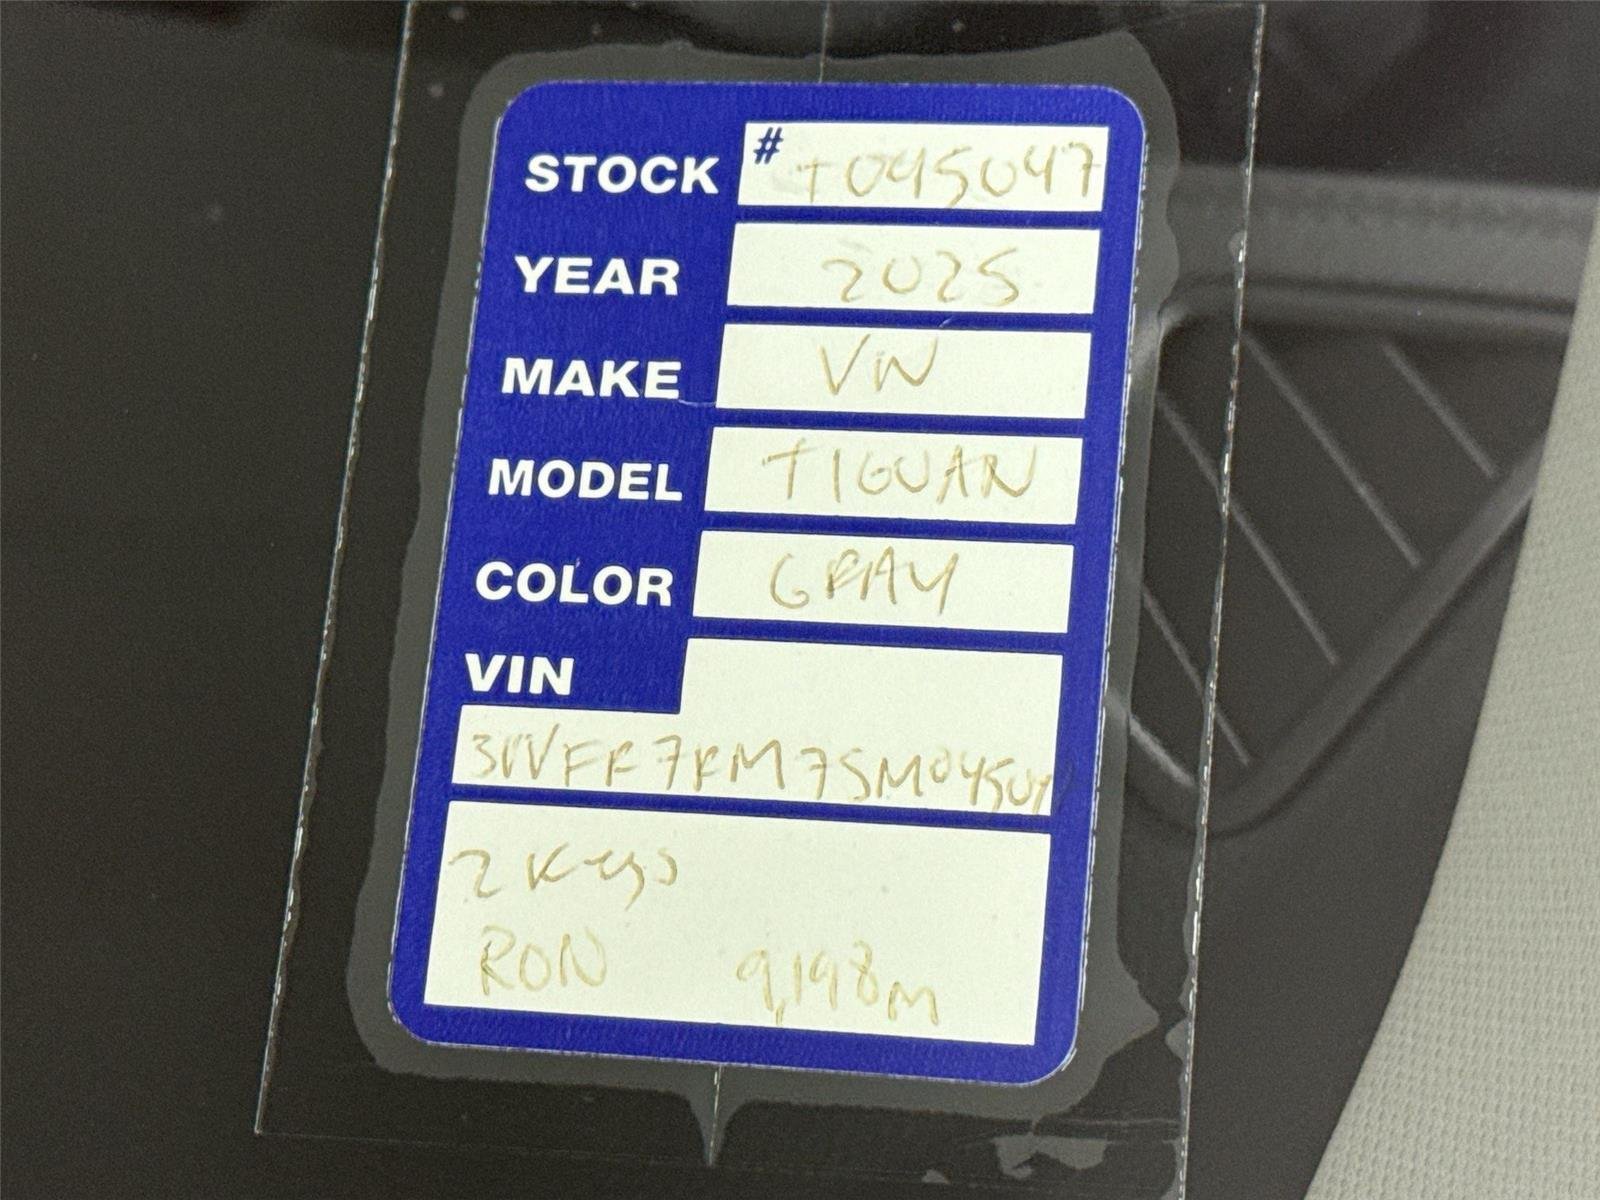 STOCK # T045047
YEAR 2025
MAKE VW
MODEL TIGUAN
COLOR GRAY
VIN
3VVFR7RM7SM045047
2 Keys
RON 9,198m